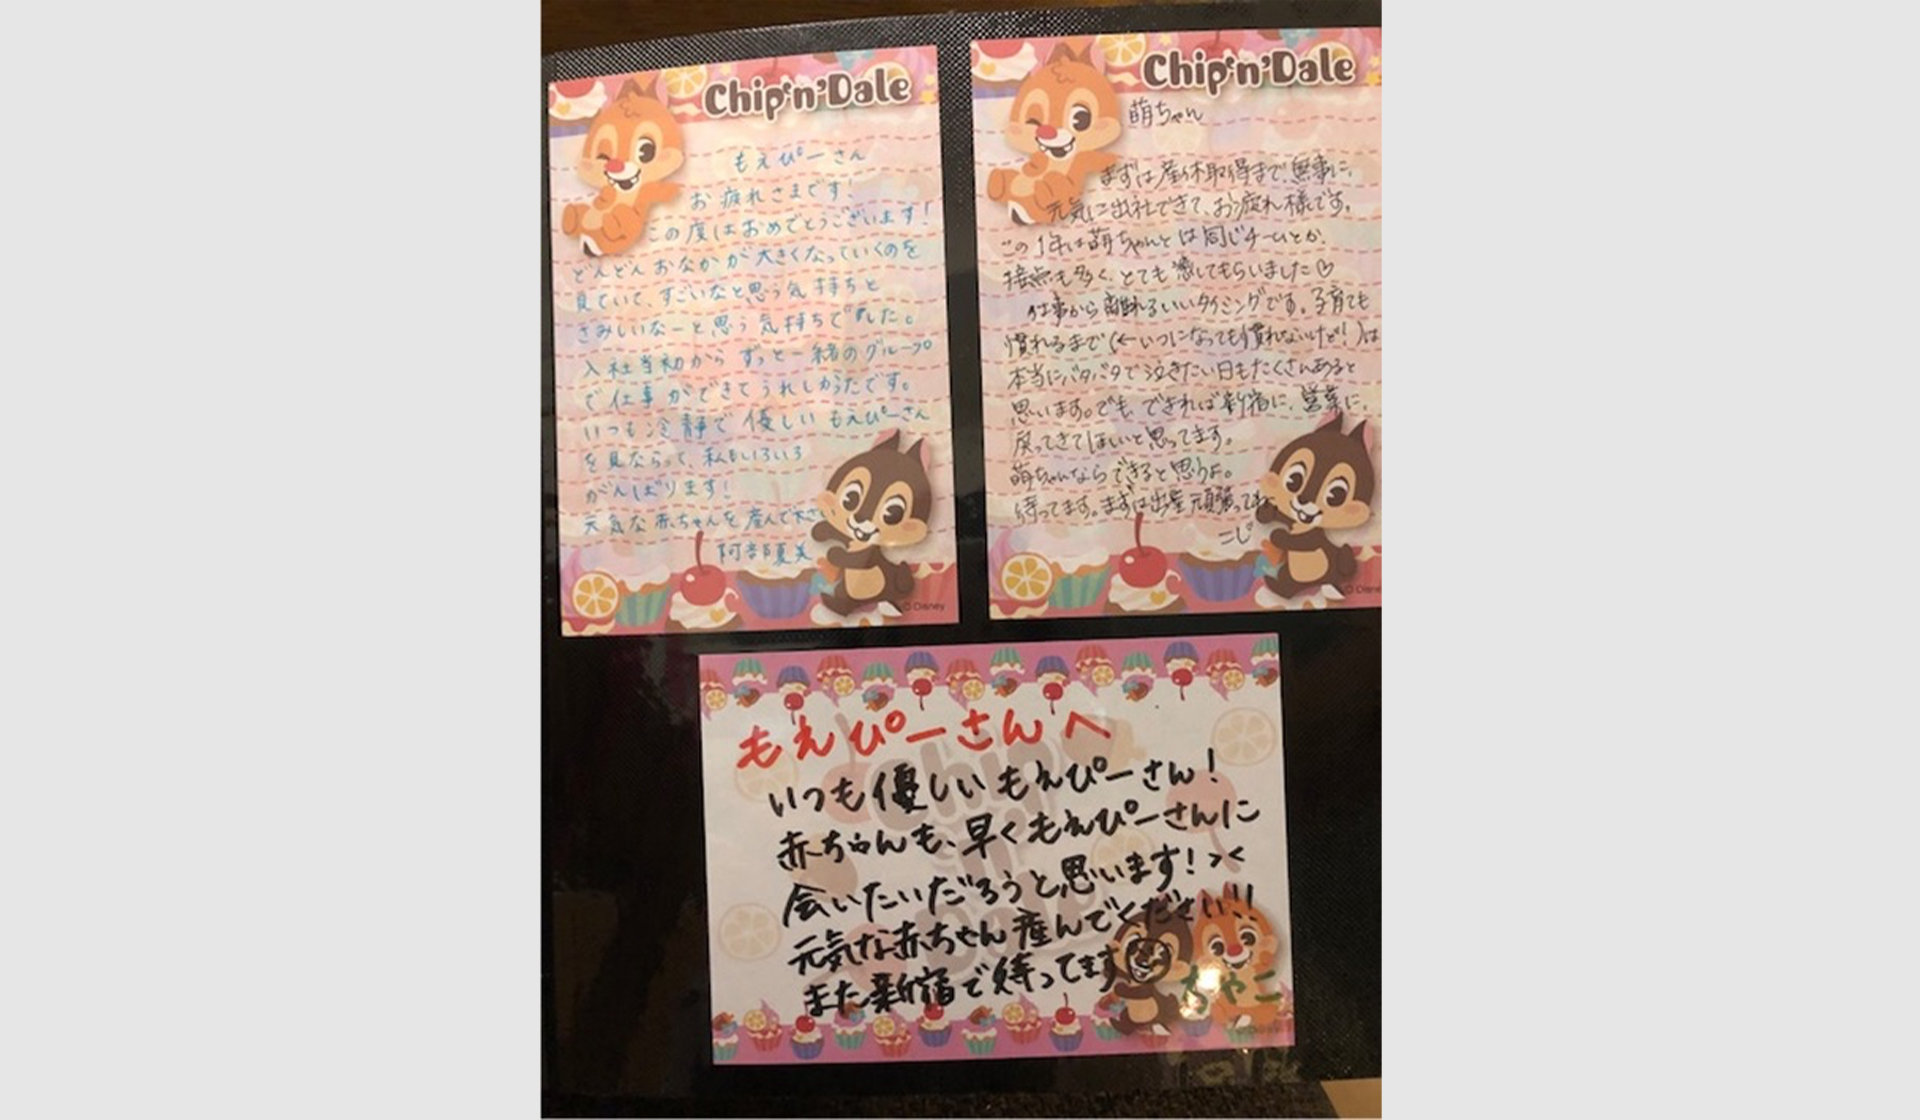 Chip'n'Dale
もえぴーさん
お疲れさまです!
この度はおめでとうございます!
どんどんおなかが大きくなっていくのを
見ていて、すごいなと思う気持ちと
さみしいなーと思う気持ちでした。
入社当初からずっと一緒のグループ
で仕事ができてうれしかったです。
いつも冷静で優しいもえぴーさん
を見ならって、私もいろいろ
がんばります!
元気な赤ちゃんを産んで下さい
阿部夏美
© Disney
Chip'n'Dale
萌ちゃん
まずは産休取得まで無事に、
元気に出社できて、お疲れ様です。
この1年は萌ちゃんとは同じチームとか、
接点も多く、とても癒してもらいました♡
仕事から離れるいいタイミングです。子育ても
慣れるまで(←いつになっても慣れないけど!)は
本当にバタバタで泣きたい日もたくさんあると
思います。でも、できれば新宿に、営業に、
戻ってきてほしいと思ってます。
萌ちゃんならできると思うよ。
待ってます。まずは出産頑張ってね。
こじ
© Disney
もえぴーさんへ
いつも優しいもえぴーさん!
赤ちゃんも、早くもえぴーさんに
会いたいだろうと思います!><
元気な赤ちゃん産んでください!!
また新宿で待ってます
ちゃこ